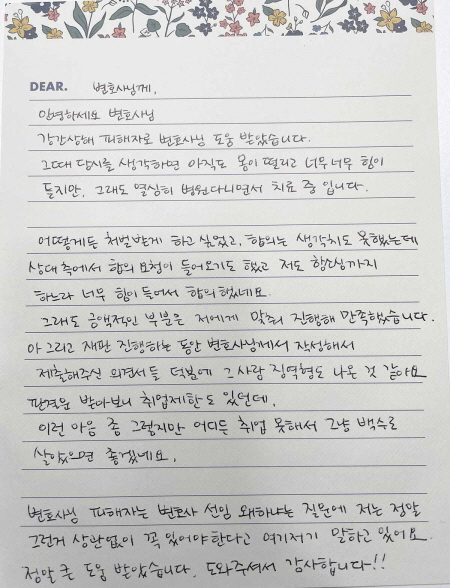 DEAR. 변호사님께,
안녕하세요 변호사님
강간상해 피해자로 변호사님 도움 받았습니다.
그때 당시를 생각하면 아직도 몸이 떨리고 너무너무 힘이
들지만, 그래도 열심히 병원다니면서 치료 중 입니다.
어떻게든 처벌받게 하고 싶었고, 합의는 생각치도 못했는데
상대측에서 합의 요청이 들어오기도 했고 저도 항소심까지
하느라 너무 힘이 들어서 합의 했네요.
그래도 금액적인 부분은 저에게 맞춰 진행해 만족했습니다.
아 그리고 재판 진행하는 동안 변호사님께서 작성해서
제출해주신 의견서들 덕분에 그 사람 징역형도 나온 것 같아요
판결문 받아보니 취업제한도 있던데,
이런 마음 좀 그렇지만 어디든 취업 못해서 그냥 백수로
살았으면 좋겠네요.
변호사님 피해자는 변호사 선임 왜하냐는 질문에 저는 정말
그런거 상관없이 꼭 있어야한다고 여기저기 말하고 있어요.
정말 큰 도움 받았습니다. 도와주셔서 감사합니다!!